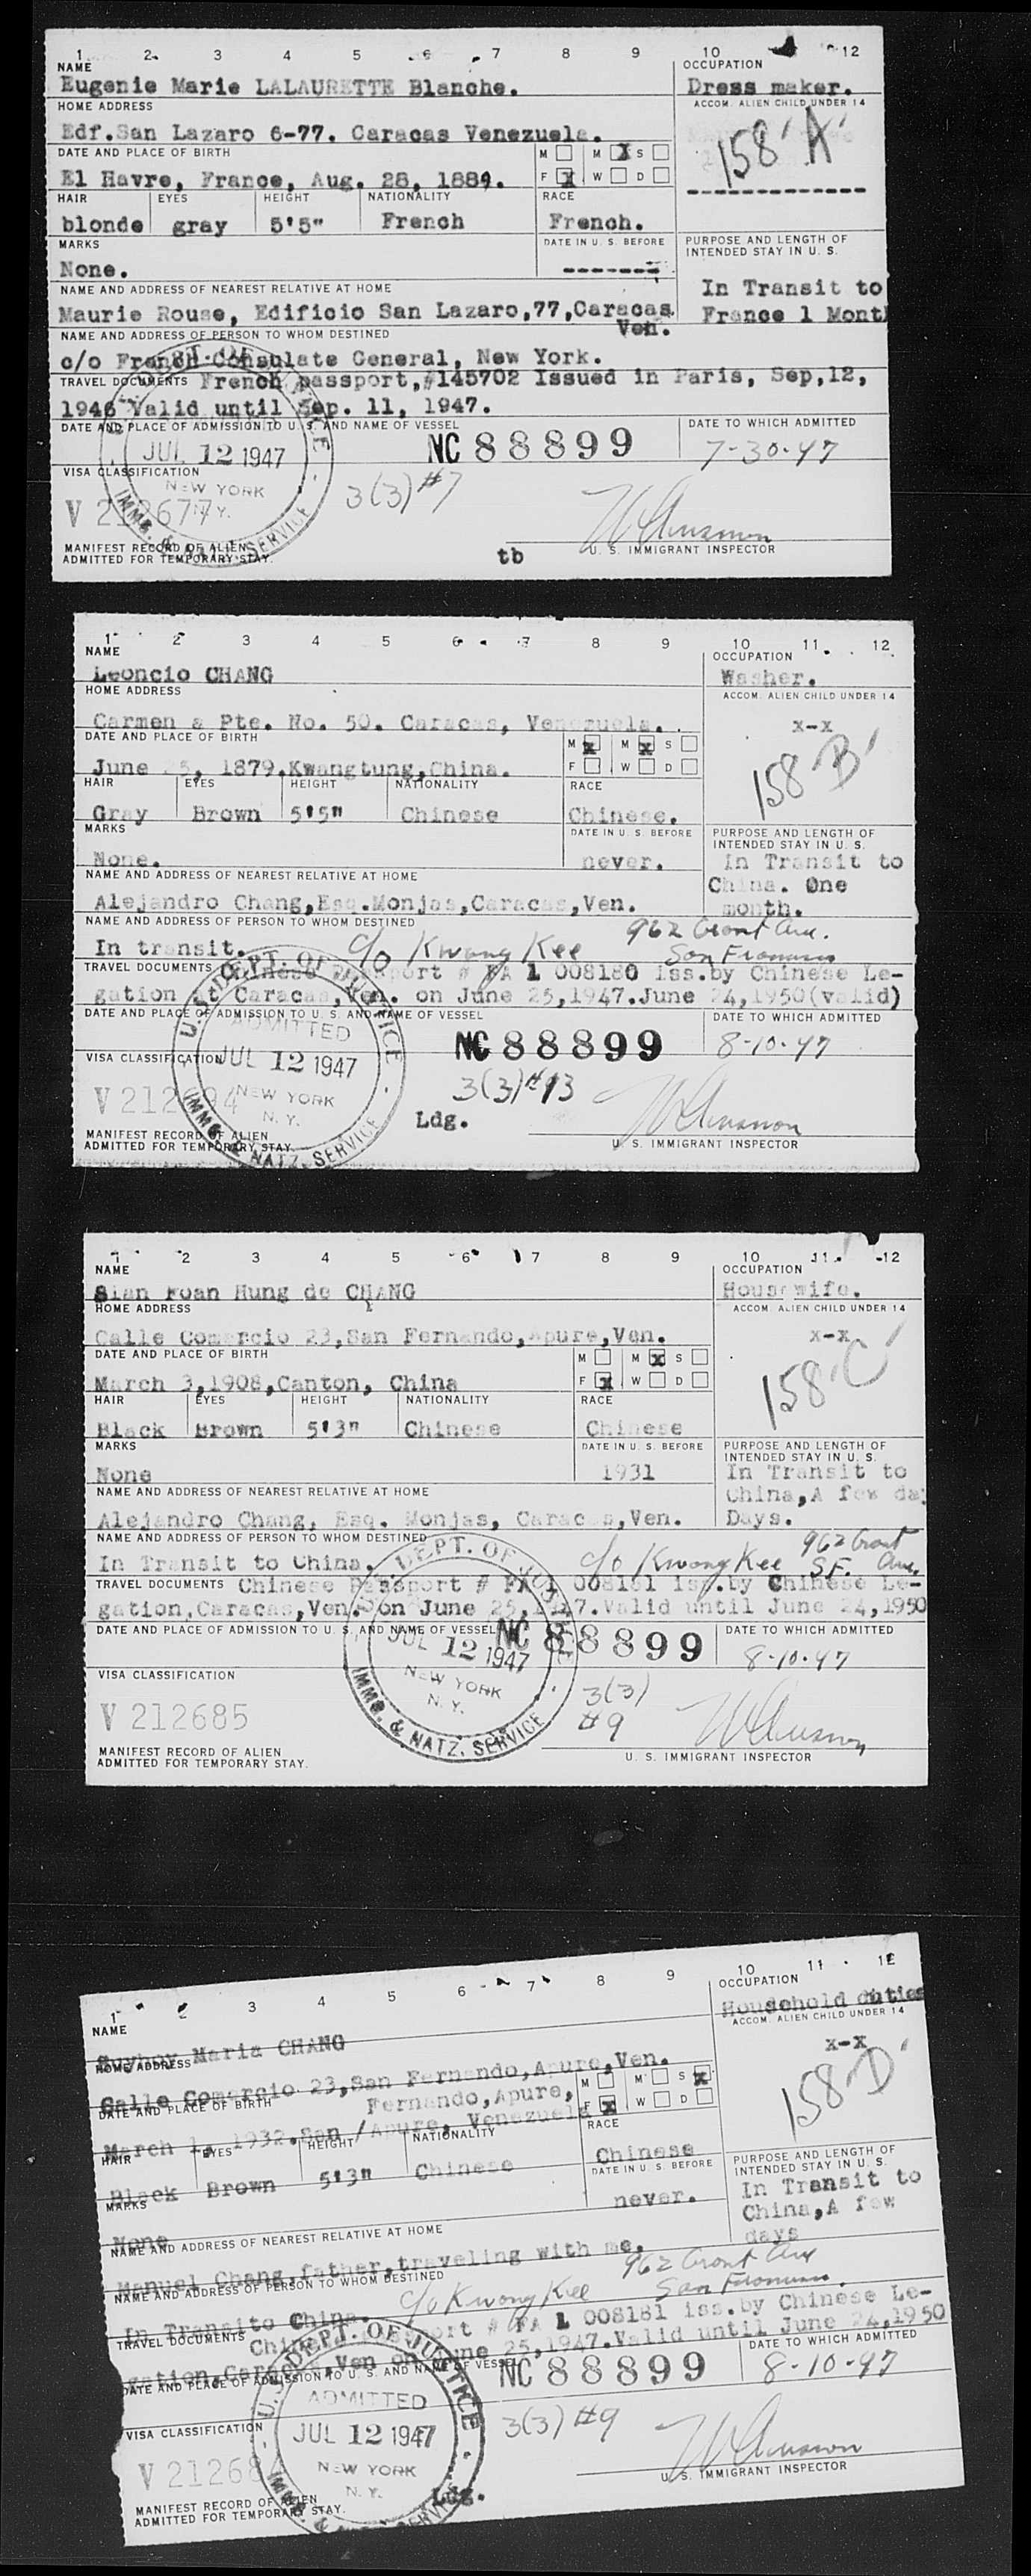 1 2 3 4 5 6 7 8 9 10 12
NAME OCCUPATION
Eugenie Marie LALAURETTE Blanche. Dress maker.
HOME ADDRESS ACCOM. ALIEN CHILD UNDER 14
Edf.San Lazaro 6-77. Caracas Venezuela. 158'A'
DATE AND PLACE OF BIRTH M M X S
El Havre, France, Aug. 28, 1884. F X W D
HAIR EYES HEIGHT NATIONALITY RACE
blonde gray 5'5" French French.
MARKS DATE IN U. S. BEFORE PURPOSE AND LENGTH OF INTENDED STAY IN U. S.
None. -------
NAME AND ADDRESS OF NEAREST RELATIVE AT HOME In Transit to
Maurie Rouse, Edificio San Lazaro,77,Caracas. Ven. France 1 Mont
NAME AND ADDRESS OF PERSON TO WHOM DESTINED
c/o French Consulate General, New York.
TRAVEL DOCUMENTS French passport,#145702 Issued in Paris, Sep,12,
1946 Valid until Sep. 11, 1947.
DATE AND PLACE OF ADMISSION TO U. S. AND NAME OF VESSEL DATE TO WHICH ADMITTED
JUL 12 1947 NC 88899 7-30-47
VISA CLASSIFICATION
NEW YORK N.Y. 3(3)#7
IMMG. & NATZ. SERVICE
MANIFEST RECORD OF ALIEN U. S. IMMIGRANT INSPECTOR
ADMITTED FOR TEMPORARY STAY. tb
1 2 3 4 5 6 7 8 9 10 11 12
NAME OCCUPATION
Leoncio CHANG Washer.
HOME ADDRESS ACCOM. ALIEN CHILD UNDER 14
Carmen a Pte. No. 50. Caracas, Venezuela. x-x
DATE AND PLACE OF BIRTH M X M X S 158'B'
June 1879.Kwangtung,China. F W D
HAIR EYES HEIGHT NATIONALITY RACE
Gray Brown 5'5" Chinese Chinese.
MARKS DATE IN U. S. BEFORE PURPOSE AND LENGTH OF INTENDED STAY IN U. S.
None. never. In Transit to
NAME AND ADDRESS OF NEAREST RELATIVE AT HOME China. One
Alejandro Chang,Esq.Monjas,Caracas,Ven. month.
NAME AND ADDRESS OF PERSON TO WHOM DESTINED 962 Grant Ave.
In transit. c/o Kwong Kee San Francisco
TRAVEL DOCUMENTS Chinese Passport # FA 1 008180 iss.by Chinese Le-
gation at Caracas,Ven. on June 25,1947.June 24,1950(valid)
DATE AND PLACE OF ADMISSION TO U. S. AND NAME OF VESSEL DATE TO WHICH ADMITTED
U.S. DEPT. OF JUSTICE ADMITTED NC 88899 8-10-47
VISA CLASSIFICATION JUL 12 1947
NEW YORK N. Y. 3(3)#13
IMMG. & NATZ. SERVICE Ldg.
MANIFEST RECORD OF ALIEN
ADMITTED FOR TEMPORARY STAY. U. S. IMMIGRANT INSPECTOR
1 2 3 4 5 6 7 8 9 10 11 12
NAME OCCUPATION
Sian Foan Hung de CHANG Housewife.
HOME ADDRESS ACCOM. ALIEN CHILD UNDER 14
Calle Comercio 23,San Fernando,Apure,Ven. x-x
DATE AND PLACE OF BIRTH M M X S 158'C'
March 3,1908,Canton, China F X W D
HAIR EYES HEIGHT NATIONALITY RACE
Black Brown 5'3" Chinese Chinese
MARKS DATE IN U. S. BEFORE PURPOSE AND LENGTH OF INTENDED STAY IN U. S.
None 1931 In Transit to
NAME AND ADDRESS OF NEAREST RELATIVE AT HOME China,A few da
Alejandro Chang, Esq. Monjas, Caracas,Ven. Days.
NAME AND ADDRESS OF PERSON TO WHOM DESTINED 962 Grant
In Transit to China. c/o Kwong Kee S.F. Ave.
TRAVEL DOCUMENTS Chinese Passport # FA 1 008181 iss.by Chinese Le-
gation,Caracas,Ven. on June 25,1947.Valid until June 24,1950
DATE AND PLACE OF ADMISSION TO U. S. AND NAME OF VESSEL NC 88899 DATE TO WHICH ADMITTED
JUL 12 1947 8-10-47
VISA CLASSIFICATION NEW YORK N. Y. 3(3)
V 212685 #9
IMMG. & NATZ. SERVICE
MANIFEST RECORD OF ALIEN U. S. IMMIGRANT INSPECTOR
ADMITTED FOR TEMPORARY STAY.
1 2 3 4 5 6 7 8 9 10 11 12
NAME OCCUPATION
Maria CHANG Household duties
HOME ADDRESS ACCOM. ALIEN CHILD UNDER 14
Calle Comercio 23,San Fernando,Apure,Ven. x-x
DATE AND PLACE OF BIRTH Fernando,Apure, M M S X 158'D'
March 1, 1932.San /Apure, Venezuela F X W D
HAIR EYES HEIGHT NATIONALITY RACE
Black Brown 5'3" Chinese Chinese
MARKS DATE IN U. S. BEFORE PURPOSE AND LENGTH OF INTENDED STAY IN U. S.
None never. In Transit to
NAME AND ADDRESS OF NEAREST RELATIVE AT HOME China,A few
Manuel Chang,father,traveling with me. days
NAME AND ADDRESS OF PERSON TO WHOM DESTINED 962 Grant Ave
In Transito China. c/o Kwong Kee San Francisco.
TRAVEL DOCUMENTS Chinese Passport # FA 1 008181 iss.by Chinese Le-
gation,Caracas,Ven on June 25,1947.Valid until June 24,1950
DATE AND PLACE OF ADMISSION TO U. S. AND NAME OF VESSEL NC 88899 DATE TO WHICH ADMITTED
U.S. DEPT. OF JUSTICE ADMITTED 8-10-47
VISA CLASSIFICATION JUL 12 1947 3(3) #9
NEW YORK N. Y.
U. S. IMMIGRANT INSPECTOR
MANIFEST RECORD OF ALIEN Ldg.
ADMITTED FOR TEMPORARY STAY.